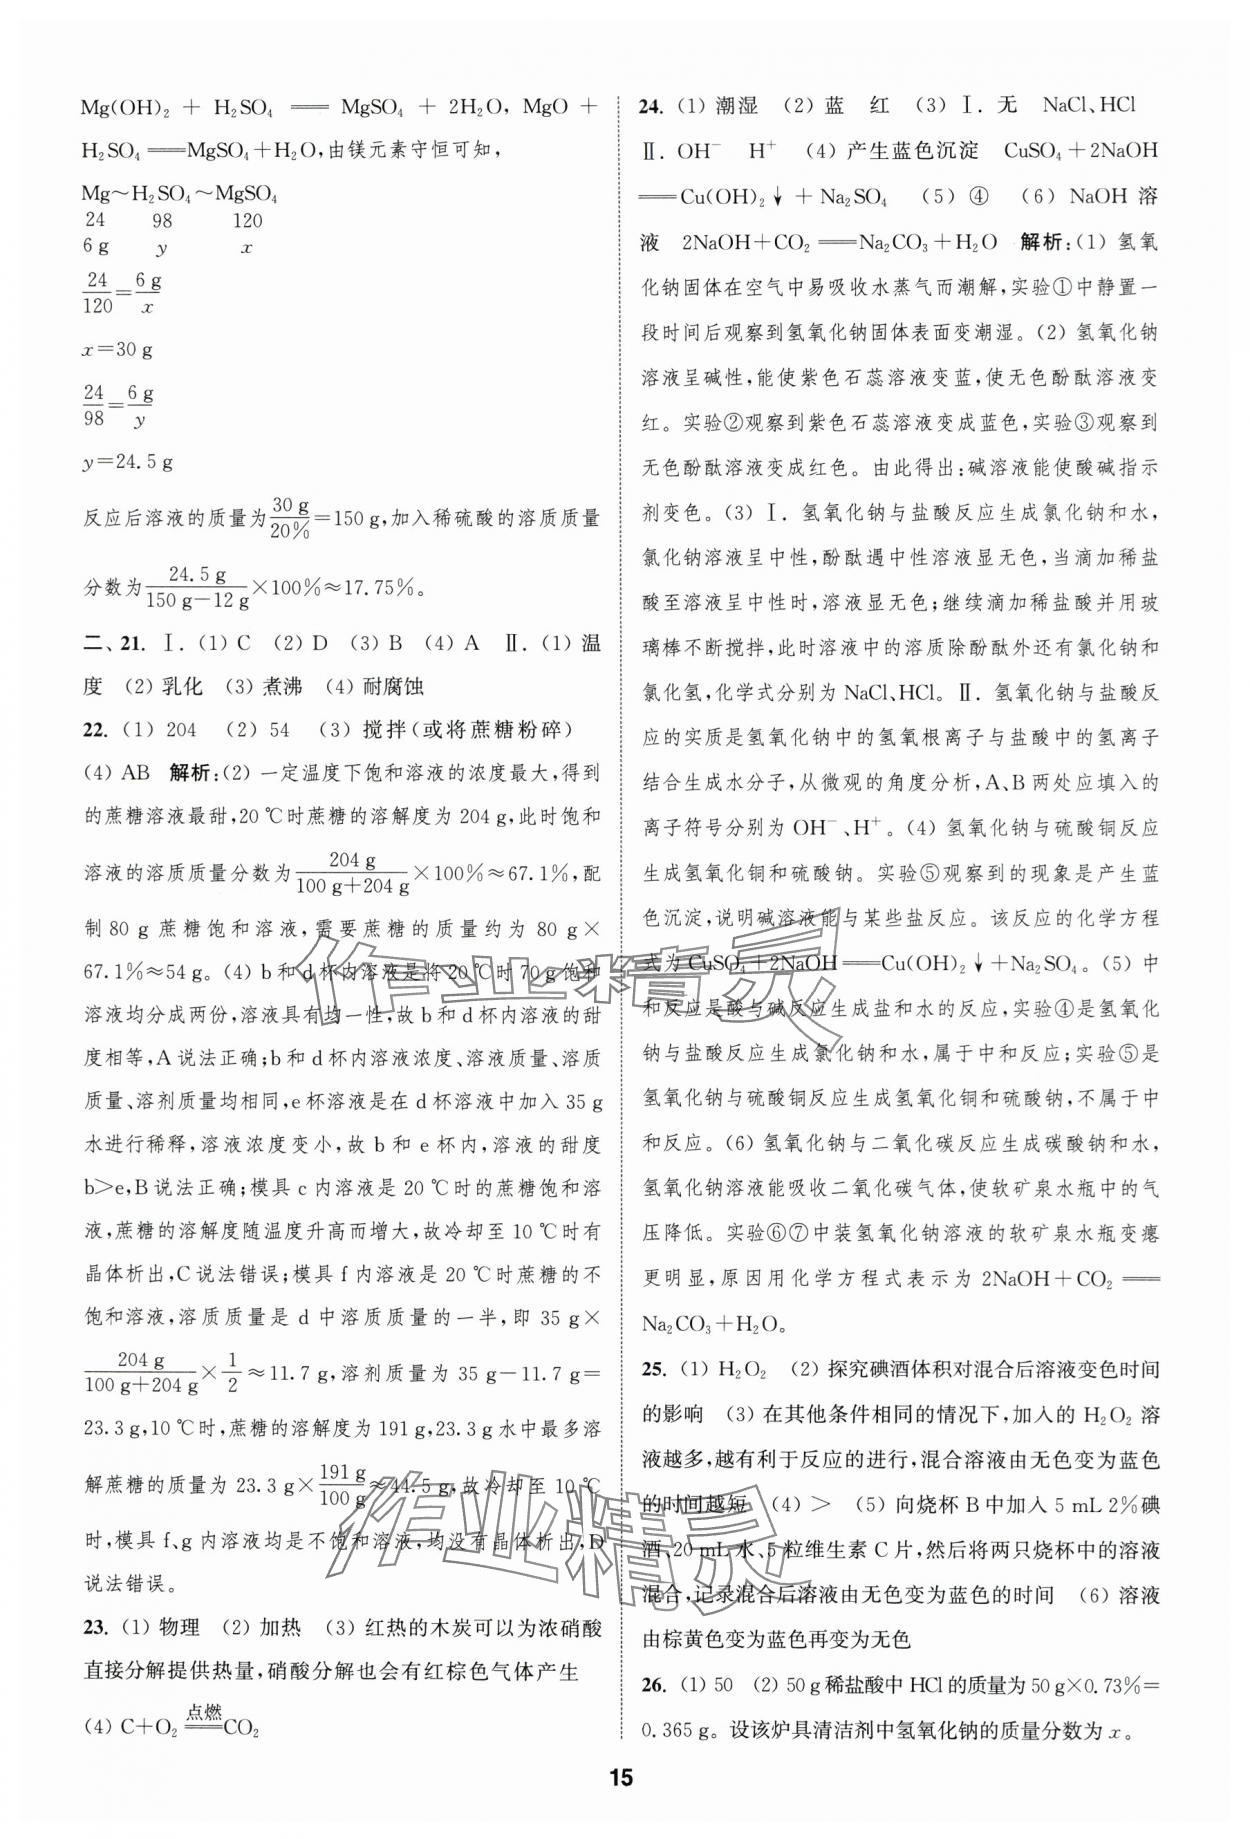 Mg(OH)₂ + H₂SO₄ ══ MgSO₄ + 2H₂O, MgO +
H₂SO₄══MgSO₄+H₂O,由镁元素守恒可知,
Mg～H₂SO₄～MgSO₄
24 98 120
6 g y x
24/120=6 g/x
x=30 g
24/98=6 g/y
y=24.5 g
反应后溶液的质量为30 g/20%=150 g,加入稀硫酸的溶质质量
分数为24.5 g/(150 g-12 g)×100%≈17.75%。
二、21. Ⅰ.(1) C (2) D (3) B (4) A Ⅱ.(1) 温
度 (2) 乳化 (3) 煮沸 (4) 耐腐蚀
22. (1) 204 (2) 54 (3) 搅拌(或将蔗糖粉碎)
(4) AB 解析:(2) 一定温度下饱和溶液的浓度最大,得到
的蔗糖溶液最甜,20 ℃时蔗糖的溶解度为 204 g,此时饱和
溶液的溶质质量分数为204 g/(100 g+204 g)×100%≈67.1%,配
制 80 g 蔗糖饱和溶液,需要蔗糖的质量约为 80 g×
67.1%≈54 g。(4) b 和 d 杯内溶液是将 20 ℃时 70 g 饱和
溶液均分成两份,溶液具有均一性,故 b 和 d 杯内溶液的甜
度相等,A 说法正确;b 和 d 杯内溶液浓度、溶液质量、溶质
质量、溶剂质量均相同,e 杯溶液是在 d 杯溶液中加入 35 g
水进行稀释,溶液浓度变小,故 b 和 e 杯内,溶液的甜度
b>e,B 说法正确;模具 c 内溶液是 20 ℃时的蔗糖饱和溶
液,蔗糖的溶解度随温度升高而增大,故冷却至 10 ℃时有
晶体析出,C 说法错误;模具 f 内溶液是 20 ℃时蔗糖的不
饱和溶液,溶质质量是 d 中溶质质量的一半,即 35 g×
204 g/(100 g+204 g)×1/2≈11.7 g,溶剂质量为 35 g-11.7 g=
23.3 g,10 ℃时,蔗糖的溶解度为 191 g,23.3 g 水中最多溶
解蔗糖的质量为 23.3 g×191 g/100 g≈44.5 g,故冷却至 10 ℃
时,模具 f、g 内溶液均是不饱和溶液,均没有晶体析出,D
说法错误。
23. (1) 物理 (2) 加热 (3) 红热的木炭可以为浓硝酸
直接分解提供热量,硝酸分解也会有红棕色气体产生
(4) C+O₂ 点燃══CO₂
24. (1) 潮湿 (2) 蓝 红 (3) Ⅰ. 无 NaCl、HCl
Ⅱ. OH⁻ H⁺ (4) 产生蓝色沉淀 CuSO₄+2NaOH
══Cu(OH)₂↓+Na₂SO₄ (5) ④ (6) NaOH 溶
液 2NaOH+CO₂══Na₂CO₃+H₂O 解析:(1) 氢氧
化钠固体在空气中易吸收水蒸气而潮解,实验①中静置一
段时间后观察到氢氧化钠固体表面变潮湿。(2) 氢氧化钠
溶液呈碱性,能使紫色石蕊溶液变蓝,使无色酚酞溶液变
红。实验②观察到紫色石蕊溶液变成蓝色,实验③观察到
无色酚酞溶液变成红色。由此得出:碱溶液能使酸碱指示
剂变色。(3) Ⅰ. 氢氧化钠与盐酸反应生成氯化钠和水,
氯化钠溶液呈中性,酚酞遇中性溶液显无色,当滴加稀盐
酸至溶液呈中性时,溶液显无色;继续滴加稀盐酸并用玻
璃棒不断搅拌,此时溶液中的溶质除酚酞外还有氯化钠和
氯化氢,化学式分别为 NaCl、HCl。Ⅱ. 氢氧化钠与盐酸反
应的实质是氢氧化钠中的氢氧根离子与盐酸中的氢离子
结合生成水分子,从微观的角度分析,A、B 两处应填入的
离子符号分别为 OH⁻、H⁺。(4) 氢氧化钠与硫酸铜反应
生成氢氧化铜和硫酸钠。实验⑤观察到的现象是产生蓝
色沉淀,说明碱溶液能与某些盐反应。该反应的化学方程
式为 CuSO₄+2NaOH══Cu(OH)₂↓+Na₂SO₄。(5) 中
和反应是酸与碱反应生成盐和水的反应,实验④是氢氧化
钠与盐酸反应生成氯化钠和水,属于中和反应;实验⑤是
氢氧化钠与硫酸铜反应生成氢氧化铜和硫酸钠,不属于中
和反应。(6) 氢氧化钠与二氧化碳反应生成碳酸钠和水,
氢氧化钠溶液能吸收二氧化碳气体,使软矿泉水瓶中的气
压降低。实验⑥⑦中装氢氧化钠溶液的软矿泉水瓶变瘪
更明显,原因用化学方程式表示为 2NaOH+CO₂══
Na₂CO₃+H₂O。
25. (1) H₂O₂ (2) 探究碘酒体积对混合后溶液变色时间
的影响 (3) 在其他条件相同的情况下,加入的 H₂O₂ 溶
液越多,越有利于反应的进行,混合溶液由无色变为蓝色
的时间越短 (4) > (5) 向烧杯 B 中加入 5 mL 2%碘
酒、20 mL 水、5 粒维生素 C 片,然后将两只烧杯中的溶液
混合,记录混合后溶液由无色变为蓝色的时间 (6) 溶液
由棕黄色变为蓝色再变为无色
26. (1) 50 (2) 50 g 稀盐酸中 HCl 的质量为 50 g×0.73%=
0.365 g。设该炉具清洁剂中氢氧化钠的质量分数为 x。
作业精灵
作业精灵
15